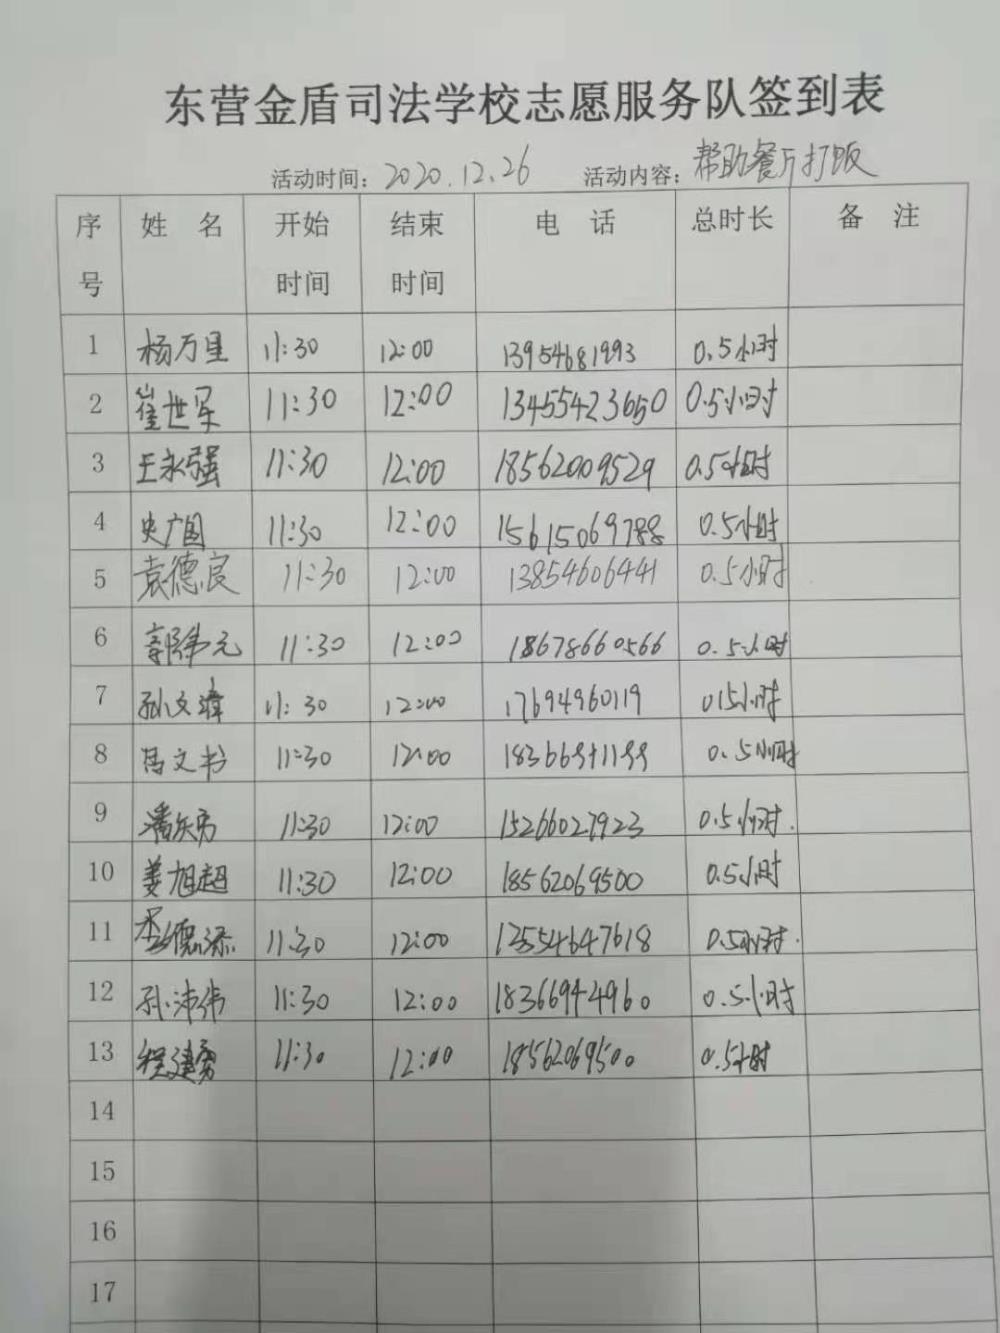 东营金盾司法学校志愿服务队签到表
活动时间：2020.12.26 活动内容：帮助餐厅打饭
序号 姓 名 开始时间 结束时间 电 话 总时长 备 注
1 杨万里 11:30 12:00 13954681993 0.5小时
2 崔世军 11:30 12:00 13455423650 0.5小时
3 王永强 11:30 12:00 18562009529 0.5小时
4 史广国 11:30 12:00 15615069788 0.5小时
5 袁德良 11:30 12:00 13854606441 0.5小时
6 郭伟元 11:30 12:00 18678660566 0.5小时
7 孙文 11:30 12:00 17694960119 0.5小时
8 冯文书 11:30 12:00 0.5小时
9 潘 11:30 12:00 15266027923 0.5小时.
10 姜旭超 11:30 12:00 18562069500 0.5小时
11 德添 11:30 12:00 13554647618 0.5小时.
12 孙沛伟 11:30 12:00 18366944960 0.5小时
13 程建勇 11:30 12:00 18562069500 0.5小时
14
15
16
17